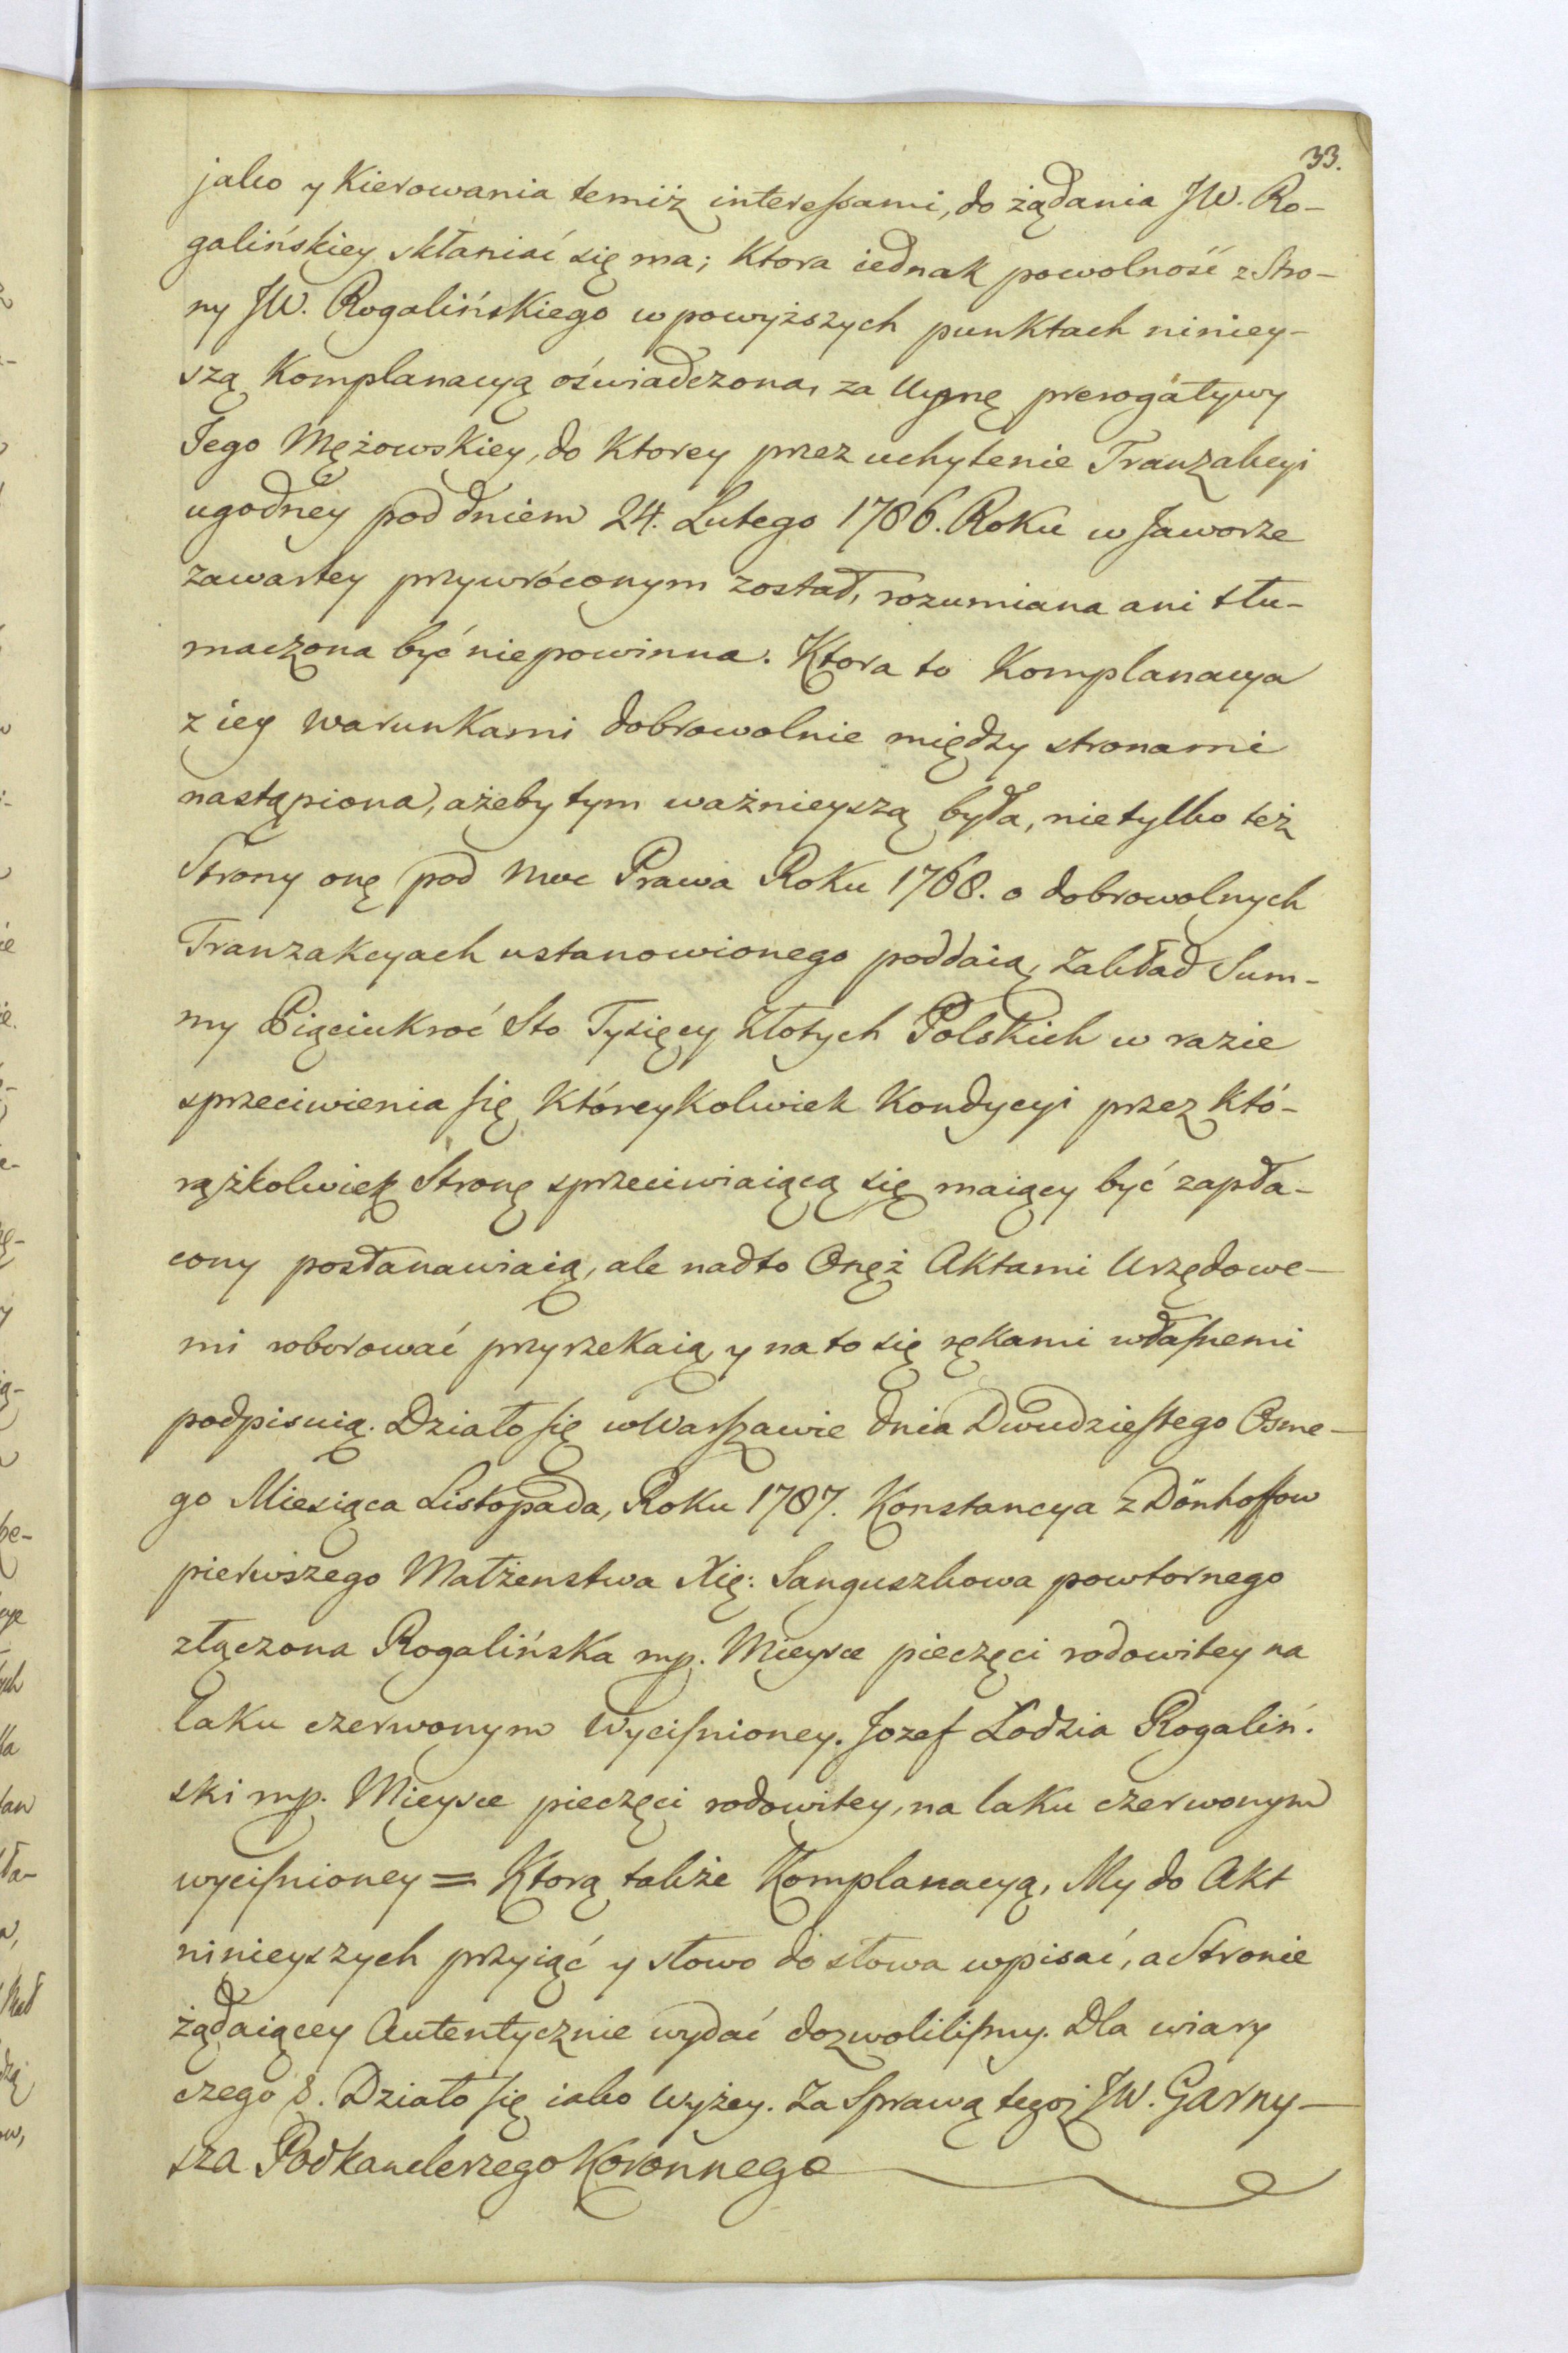 33.
jako y Kierowania temiż interessami, do żądania JW. Ro-
galińskiey skłaniać się ma; Ktora iednak powolność z Stro-
ny JW. Rogalińskiego w powyższych punktach niniey-
szą Komplanacyą oświadczona, za Uymę prerogatywy
Jego Mężowskiey, do Ktorey przez uchylenie Tranzakcyi
ugodney pod dniem 24. Lutego 1786. Roku w Jaworze
zawartey przywróconym został, rozumiana ani tłu-
maczona być niepowinna. Ktora to Komplanacya
z iey warunkami dobrowolnie między stronami
nastąpiona, ażeby tym ważnieyszą była, nietylko też
Strony onę pod moc Prawa Roku 1768. o dobrowolnych
Tranzakcyach ustanowionego poddaią, Zakład Sum-
my Pięciukroć Sto Tysięcy Złotych Polskich w razie
sprzeciwienia się Któreykolwiek Kondycyi przez Któ-
rążkolwiek Stronę sprzeciwiaiącą się maiący być zapła-
cony postanawiaią, ale nadto Onęż Aktami Urzędowe-
mi roborować przyrzekaią, y na to się rękami własnemi
podpisuią. Działo się w Warszawie dnia Dwudziestego Osme-
go Miesiąca Listopada, Roku 1787. Konstancya z Dönhoffow
pierwszego Małżenstwa Xię: Sanguszkowa powtornego
złączona Rogalińska mp. Mieysce pieczęci rodowitey na
laku czerwonym wycisnioney. Jozef Łodzia Rogaliń.
ski mp. Mieysce pieczęci rodowitey, na laku czerwonym
wycisnioney = Ktorą także Komplanacyą, My do Akt
ninieyszych przyiąć y słowo do słowa wpisać, a Stronie
żądaiącey Autentycznie wydać dozwolilismy. Dla wiary
czego &. Działo się iako wyżey. Za Sprawą tegoż JW. Garny-
sza Podkanclerzego Koronnego